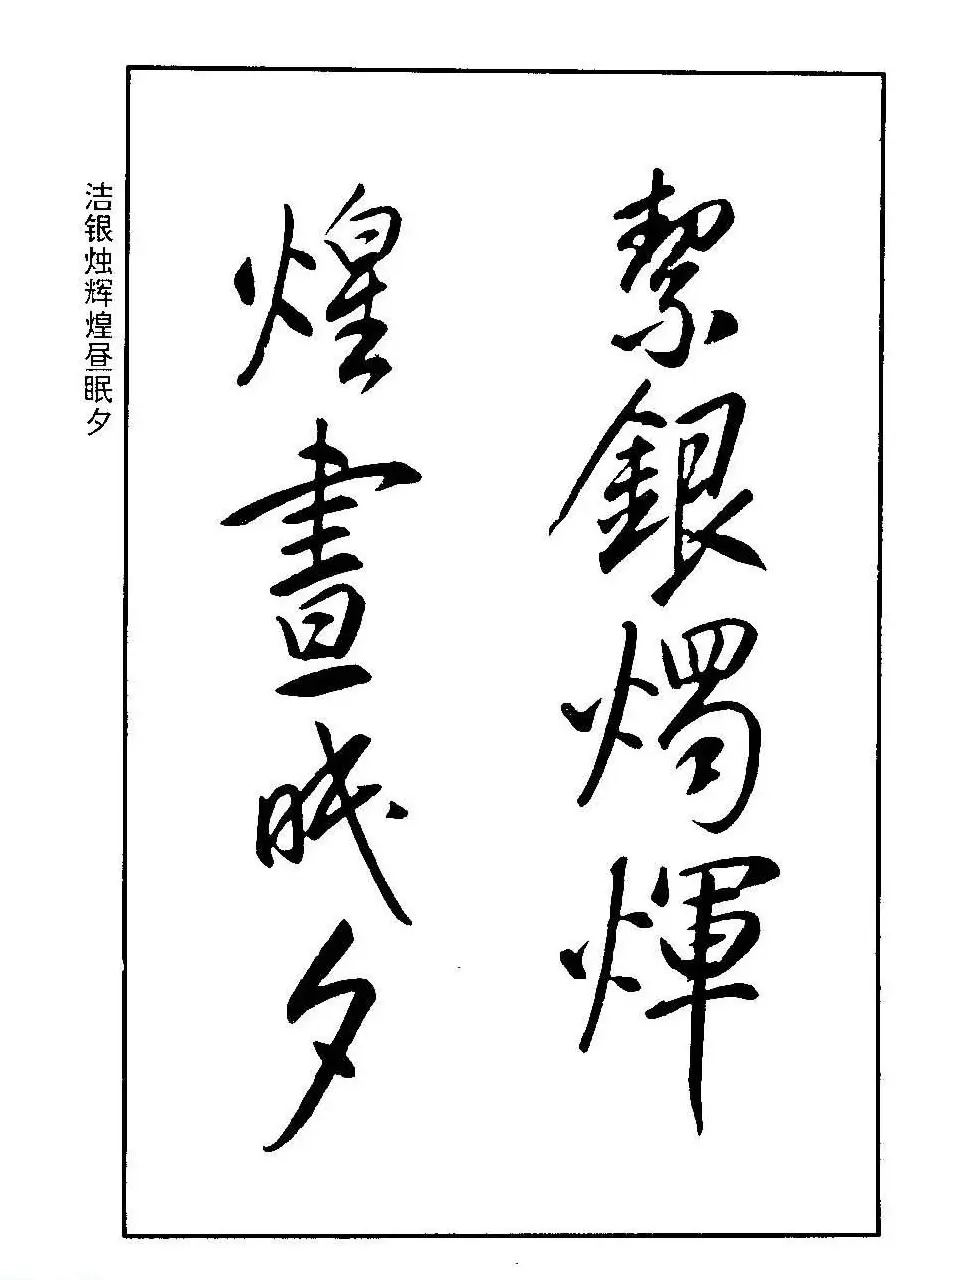 絜銀燭煒
煌晝眠夕
洁银烛辉煌昼眠夕